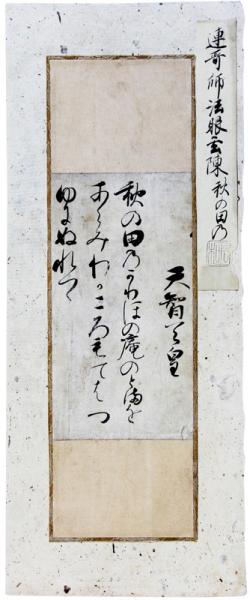 連哥師法眼玄陳秋の田乃
天智天皇
秋の田乃かりほの庵のとまを
あらみわかころもてはつ
ゆにぬれつゝ